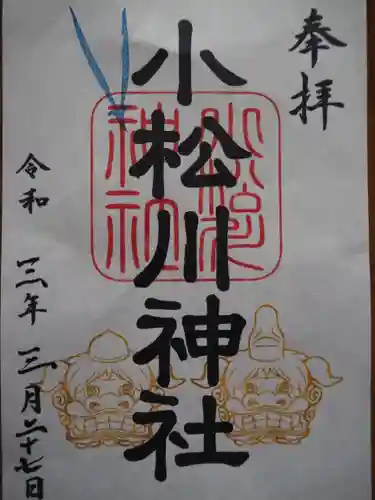 奉拝
小松川神社
小松川
神社
令和 三年 三月二十七日